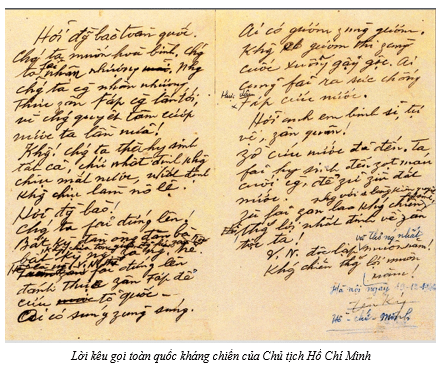 Hỡi đg̀ bào toàn quốc.
Chg ta muốn hoà bình, chg
ta fải nhân nhượng. Nhg
chg ta cg nhân nhượng
thực zân fáp cg lấn tới,
vì chg quyết tâm cướp
nước ta lần nữa!
Khg! Chg ta thà hy sinh
tất cả, chứ nhất định khg
chịu mất nước, nhất định
khg chịu làm nô lệ.
Hỡi đg̀ bào!
Chg ta fải đứng lên!
Bất kỳ đàn ông đàn bà
bất kỳ
fải đứng lên
đánh thực zân fáp để
cứu tổ quốc.
Ai có súng zùng súng.
Ai có gươm zùng gươm.
Khg có gươm thì zùng
cuốc xuổng gậy gộc. Ai
cũng fải ra sức chống
fáp cứu nước.
Hỡi anh em binh sĩ, tự
vệ, zân quân!
Zờ cứu nước đã đến. Ta
fải hy sinh đến zọt máu
cuối cg, để zữ zìn đất
nước.
Zù fải zan lao kháng chiến
thắg lợi nhất định về zân
tộc ta!
V.N. độc lập và thống nhất muôn năm!
Khg chiến thắg lợi muôn
năm!
Hà nội ngày
Hồ - chí - minh
Lời kêu gọi toàn quốc kháng chiến của Chủ tịch Hồ Chí Minh